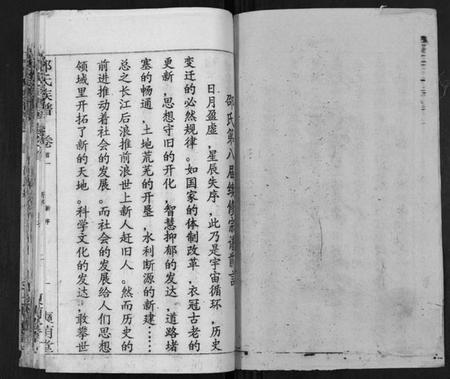 邵氏第八届续修宗谱前言
日月盈虚,星辰失序,此乃是宇宙循环,历史
变迁的必然规律。如国家的体制改革,衣冠古老的
更新,思想守旧的开化,智慧抑郁的发达,道路堵
塞的畅通,土地荒芜的开垦,水利断源的新建……
总之长江后浪推前浪世上新人赶旧人。然而历史的
前进推动着社会的发展。而社会的发展给人们思想
领域里开拓了新的天地。科学文化的发达,敢攀世
邵氏族谱
卷首一